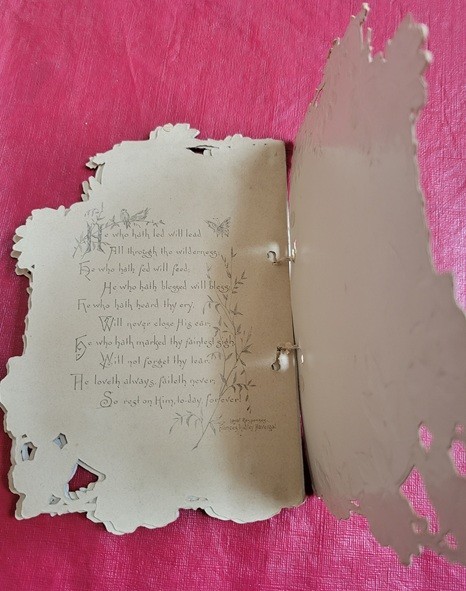 He who hath led will lead
All through the wilderness,
He who hath fed will feed;
He who hath blessed will bless
He who hath heard thy cry
Will never close His ear,
He who hath marked thy faintest sigh
Will not forget thy tear.
He loveth always, faileth never,
So rest on Him, to-day, forever!
Frances Ridley Havergal